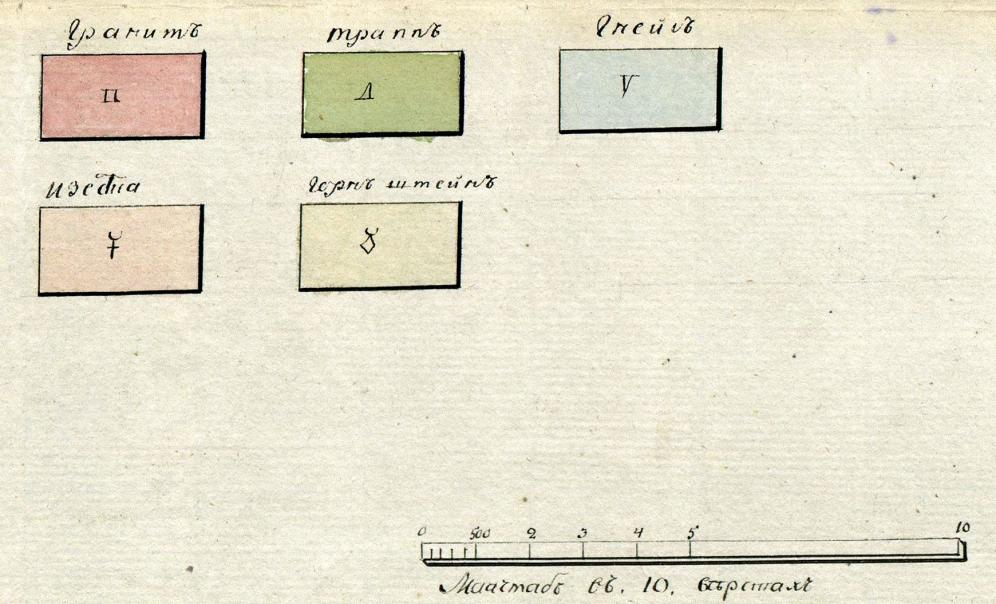 Гранитъ
траппъ
Гнейсъ
п
Δ
V
Горнъ штейнъ
0 500 2 3 4 5 10
Маачтабъ въ. 10. вѣрстахъ